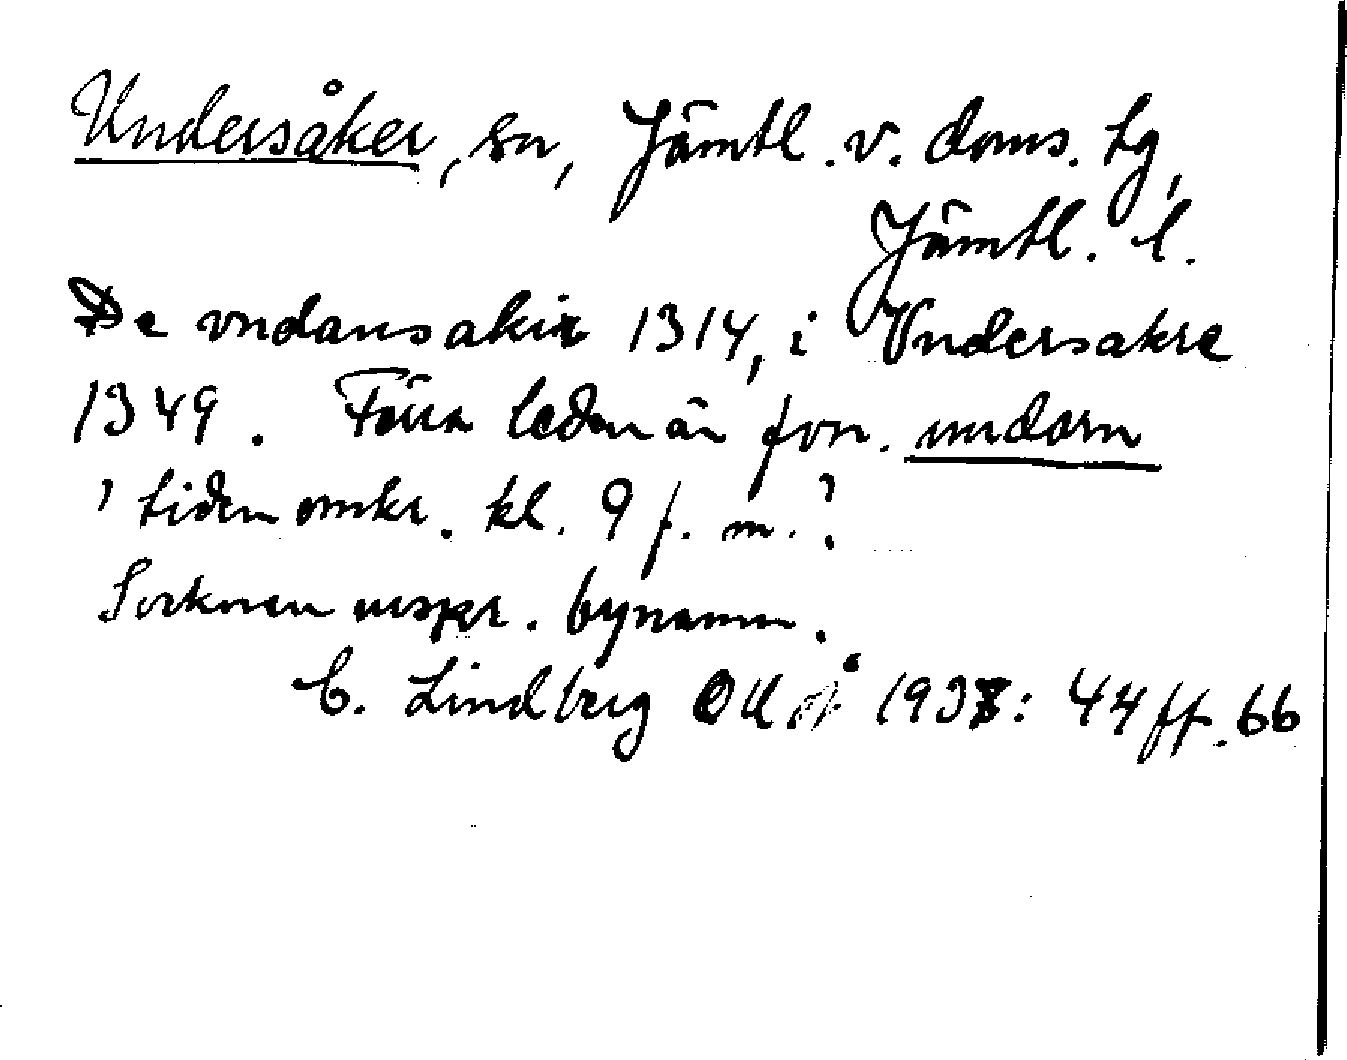 Undersåker, sn, Jämtl. v. doms. tg,
Jämtl. l.
De vndansakir 1314, i Vndersakre
1349. Förra leden är fvn. undorn
'tiden omkr. kl. 9 f. m.?
Socknen urspr. bynamn.
C. Lindberg OUÅ 1937: 44 ff. 66